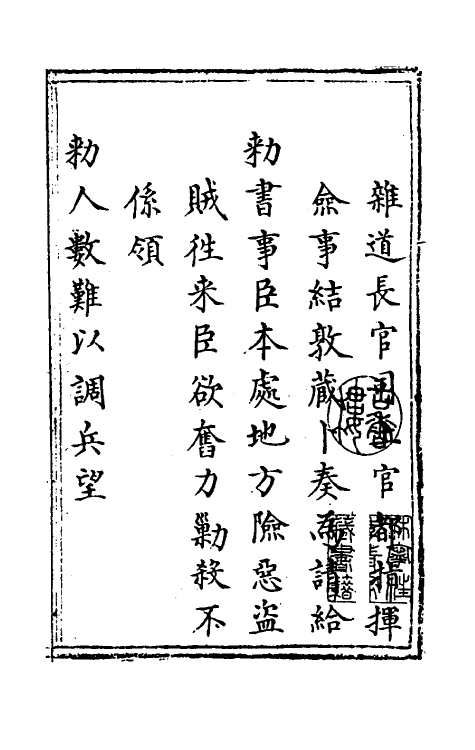 雜道長官司土官都指揮
僉事結敦藏卜奏為請給
勅書事臣本處地方險惡盜
賊徃来臣欲奮力勦殺不
係領
勅人數難以調兵望